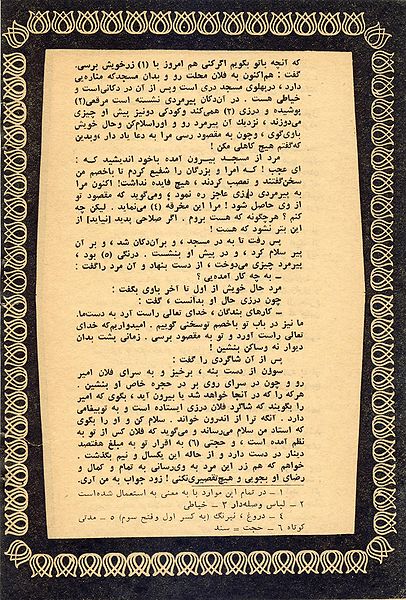 که آنچه باتو بگویم اگرکنی هم امروز با (۱) زرخویش برسی.
گفت : هم‌اکنون به فلان محلت رو و بدان مسجدکه مناره‌یی
دارد ، درپهلوی مسجد دری است وپس از آن در دکانی‌است و
خیاطی هست . در آن‌دکان پیرمردی نشسته است مرقعی(۲)
پوشیده و درزی (۳) همی‌کند وکودکی دونیز پیش او چیزی
می‌دوزند ، نزدیك آن پیرمرد رو و اوراسلام‌کن وحال خویش
باوی‌گوی ، وچون به مقصود رسی مرا به دعا یاد دار ،وبدین
که‌گفتم هیچ کاهلی مکن !
مرد از مسجد بیرون آمده باخود اندیشید کـه :
ای عجب ! کـه امرا و بزرگان را شفیع کردم تا باخصم من
سخن‌گفتند و تعصب کردند ، هیچ فایده نداشت! اکنون مرا
به پیرمردی درزی عاجز ره نمود ، ومی‌گوید که مقصود تو
از وی حاصل شود ! مرا این مخرقه (٤) می‌نماید . لیکن چه
کنم ؟ هرچگونه که هست بروم . اگر صلاحی پدید [نیاید] از
این بتر نشود که هست !
پس رفت تا به در مسجد ، و برآن‌دکان شد ، و بر آن
پیر سلام کرد ، و در پیش او بنشست . درنگی (۵) بود ،
پیرمرد چیزی می‌دوخت ، از دست بنهاد و آن مرد راگفت :
ـ به چه کار آمده‌یی ؟
مرد حال خویش از اول تا آخر باوی بگفت :
چون درزی حال او بدانست ، گفت :
ـ کارهای بندگان ، خدای تعالی راست آرد به دست‌ما.
ما نیز در باب تو باخصم توسخنی گوییم . امیدواریم‌که خدای
تعالی راست آورد و تو به مقصود برسی . زمانی پشت بدان
دیوار نه وساکن بنشین !
پس از آن شاگردی را گفت :
سوزن از دست بنه ، برخیز و به سرای فلان امیر
رو و چون در سرای روی بر در حجره خاص او بنشین .
هرکه را که در آنجا خواهد شد یا بیرون آید ، بگوی که امیر
را بگویند که شاگرد فلان درزی ایستاده است و به توپیغامی
دارد . آنگه ترا از اندرون خواند . سلام کن و او را بگوی
که استاد من سلام می‌رساند و می‌گوید که فلان کس از تو به
تظلم آمده است ، و حجتی (٦) به اقرار تو به مبلغ هفتصد
دینار در دست دارد و از حاله این یکسال و نیم بگذشت .
خواهم که هم زر این مرد به وی‌رسانی به تمام و کمال و
رضای او بجویی و هیچ‌تقصیری‌نکنی ! زود جواب به من آری.
۱ ـ در تمام این موارد با به معنی به استعمال شده‌است
۲ ـ لباس وصله‌دار ۳ ـ خیاطی
٤ ـ دروغ ، نیرنگ (به کسر اول وفتح سوم) ۵ ـ مدتی
کوتاه ٦ ـ حجت = سند